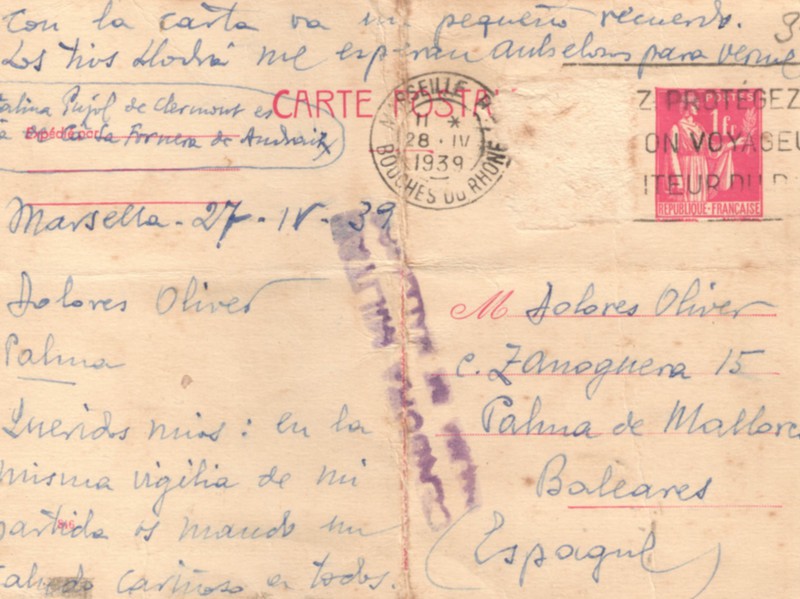 Con la carta va un pequeño recuerdo.
Los tios Llodrá me esperan Auba para verme
Catalina Pujol de Clermont es
la de Ca'La Fornera de Andraitx
Expédié par
CARTE POSTA
MARSEILLE
11 *
28 · IV
1939
BOUCHES DU RHÔNE
Z PROTÉGEZ
ON VOYAGEU
ITEUR DU
POSTES
1F
REPUBLIQUE-FRANÇAISE
Marsella - 27 - IV - 39
Dolores Oliver
Palma
Queridos mios: en la
misma vigilia de mi
partida os mando un
saludo cariñoso a todos.
M Dolores Oliver
c. Zanoguera 15
Palma de Mallorca
Baleares
(Espagne)
CENSURA MILITAR
PALMA DE MALLORCA